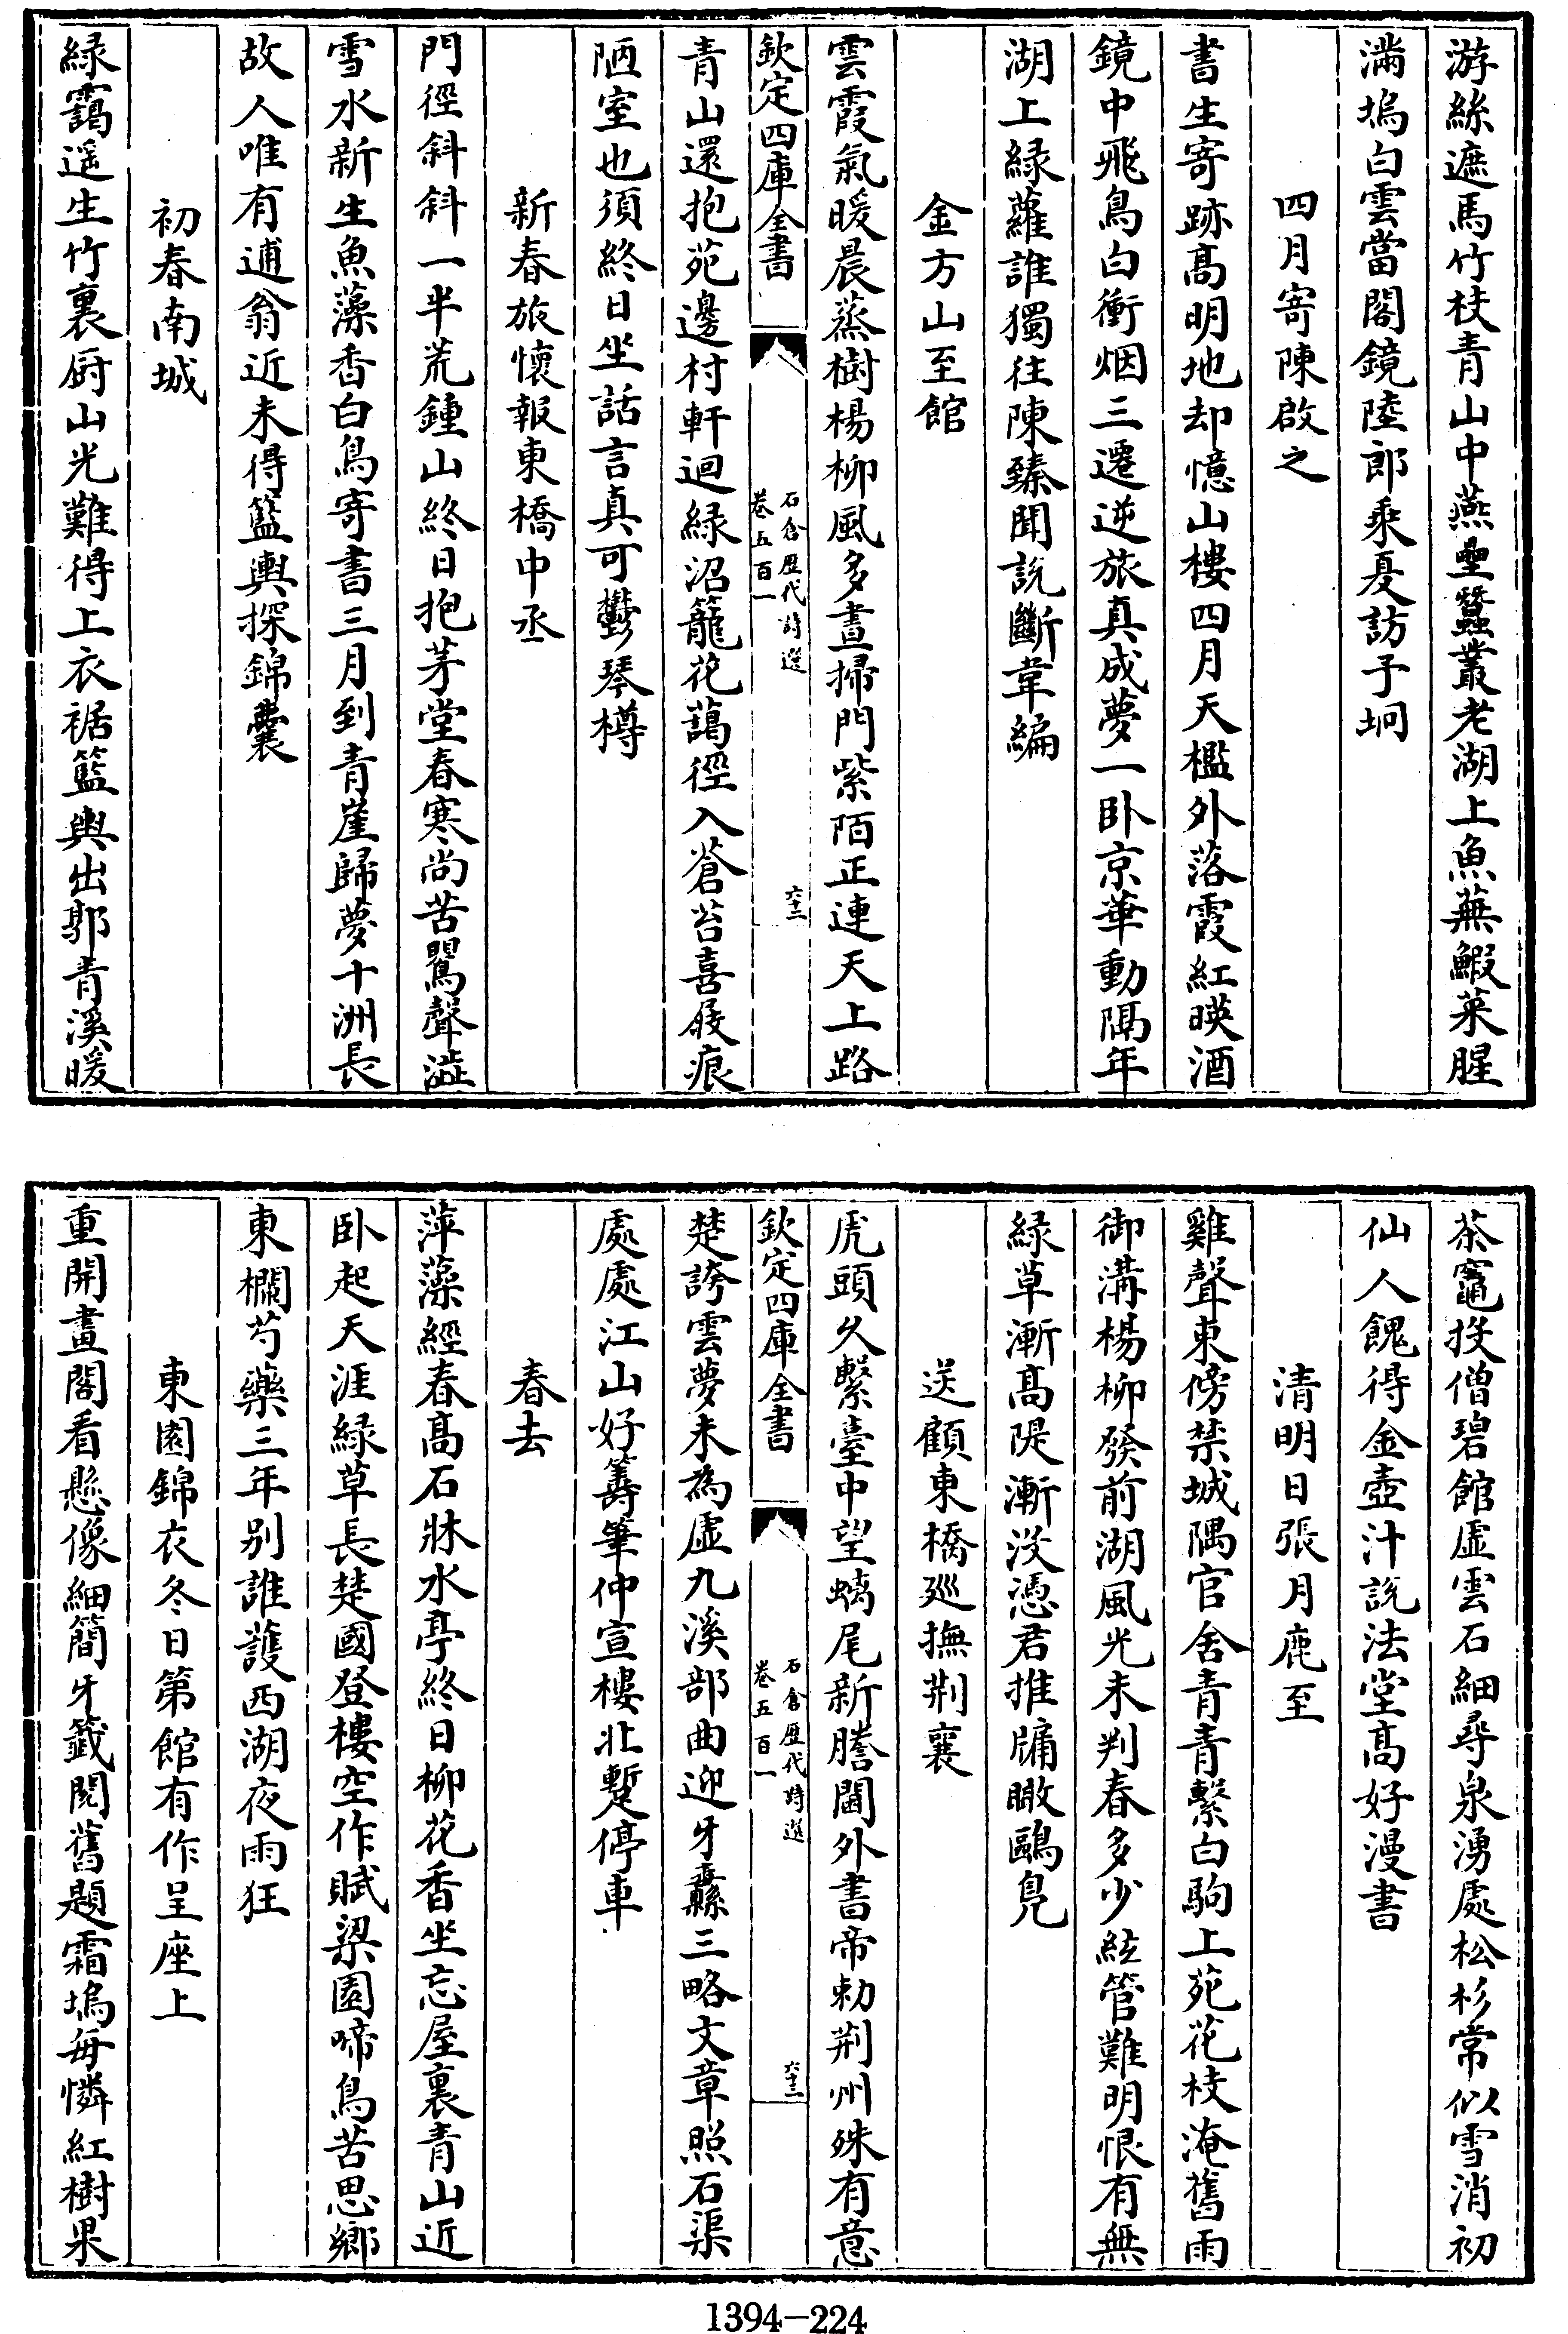 游絲遮馬竹枝青山中燕壘蠶叢老湖上魚蕪鰕菜腥
滿塢白雲當閣鏡陸郎乘夏訪子坰
四月寄陳啟之
書生寄跡髙明地却憶山樓四月天檻外落霞紅暎酒
鏡中飛鳥白衝烟三遷逆旅真成夢一卧京華動隔年
湖上緑蘿誰獨往陳臻聞説斷韋編
金方山至館
雲霞氣暖晨蒸樹楊柳風多晝掃門紫陌正連天上路
欽定四庫全書
石倉歷代詩選
卷五百一
六十二
青山還抱苑邊村軒迴緑沼籠花藹徑入蒼苔喜屐痕
陋室也須終日坐話言真可鬱琴樽
新春旅懷報東橋中丞
門徑斜斜一半荒鍾山終日抱茅堂春寒尚苦鸎聲澁
雪水新生魚藻香白鳥寄書三月到青崖歸夢十洲長
故人唯有逋翁近未得籃輿探錦囊
初春南城
緑靄遥生竹裏厨山光難得上衣裾籃輿出郭青溪暖
茶竈投僧碧館虚雲石細尋泉湧處松杉常似雪消初
仙人餽得金壺汁説法堂髙好漫書
清明日張月鹿至
雞聲東傍禁城隅官舍青青繫白駒上苑花枝淹舊雨
御溝楊柳發前湖風光未判春多少絃管難明恨有無
緑草漸髙隄漸沒憑君推牗瞰鷗鳧
送顧東橋廵撫荆襄
虎頭久繫臺中望螭尾新謄閫外書帝勅荆州殊有意
欽定四庫全書
石倉歷代詩選
卷五百一
六十三
楚誇雲夢未為虚九溪部曲迎牙纛三略文章照石渠
處處江山好籌筆仲宣樓北蹔停車
春去
萍藻經春髙石牀水亭終日柳花香坐忘屋裏青山近
卧起天涯緑草長楚國登樓空作賦梁園啼鳥苦思鄉
東欄芍藥三年别誰護西湖夜雨狂
東園錦衣冬日第館有作呈座上
重開畫閣看懸像細簡牙籤閲舊題霜塢每憐紅樹果
1394-224